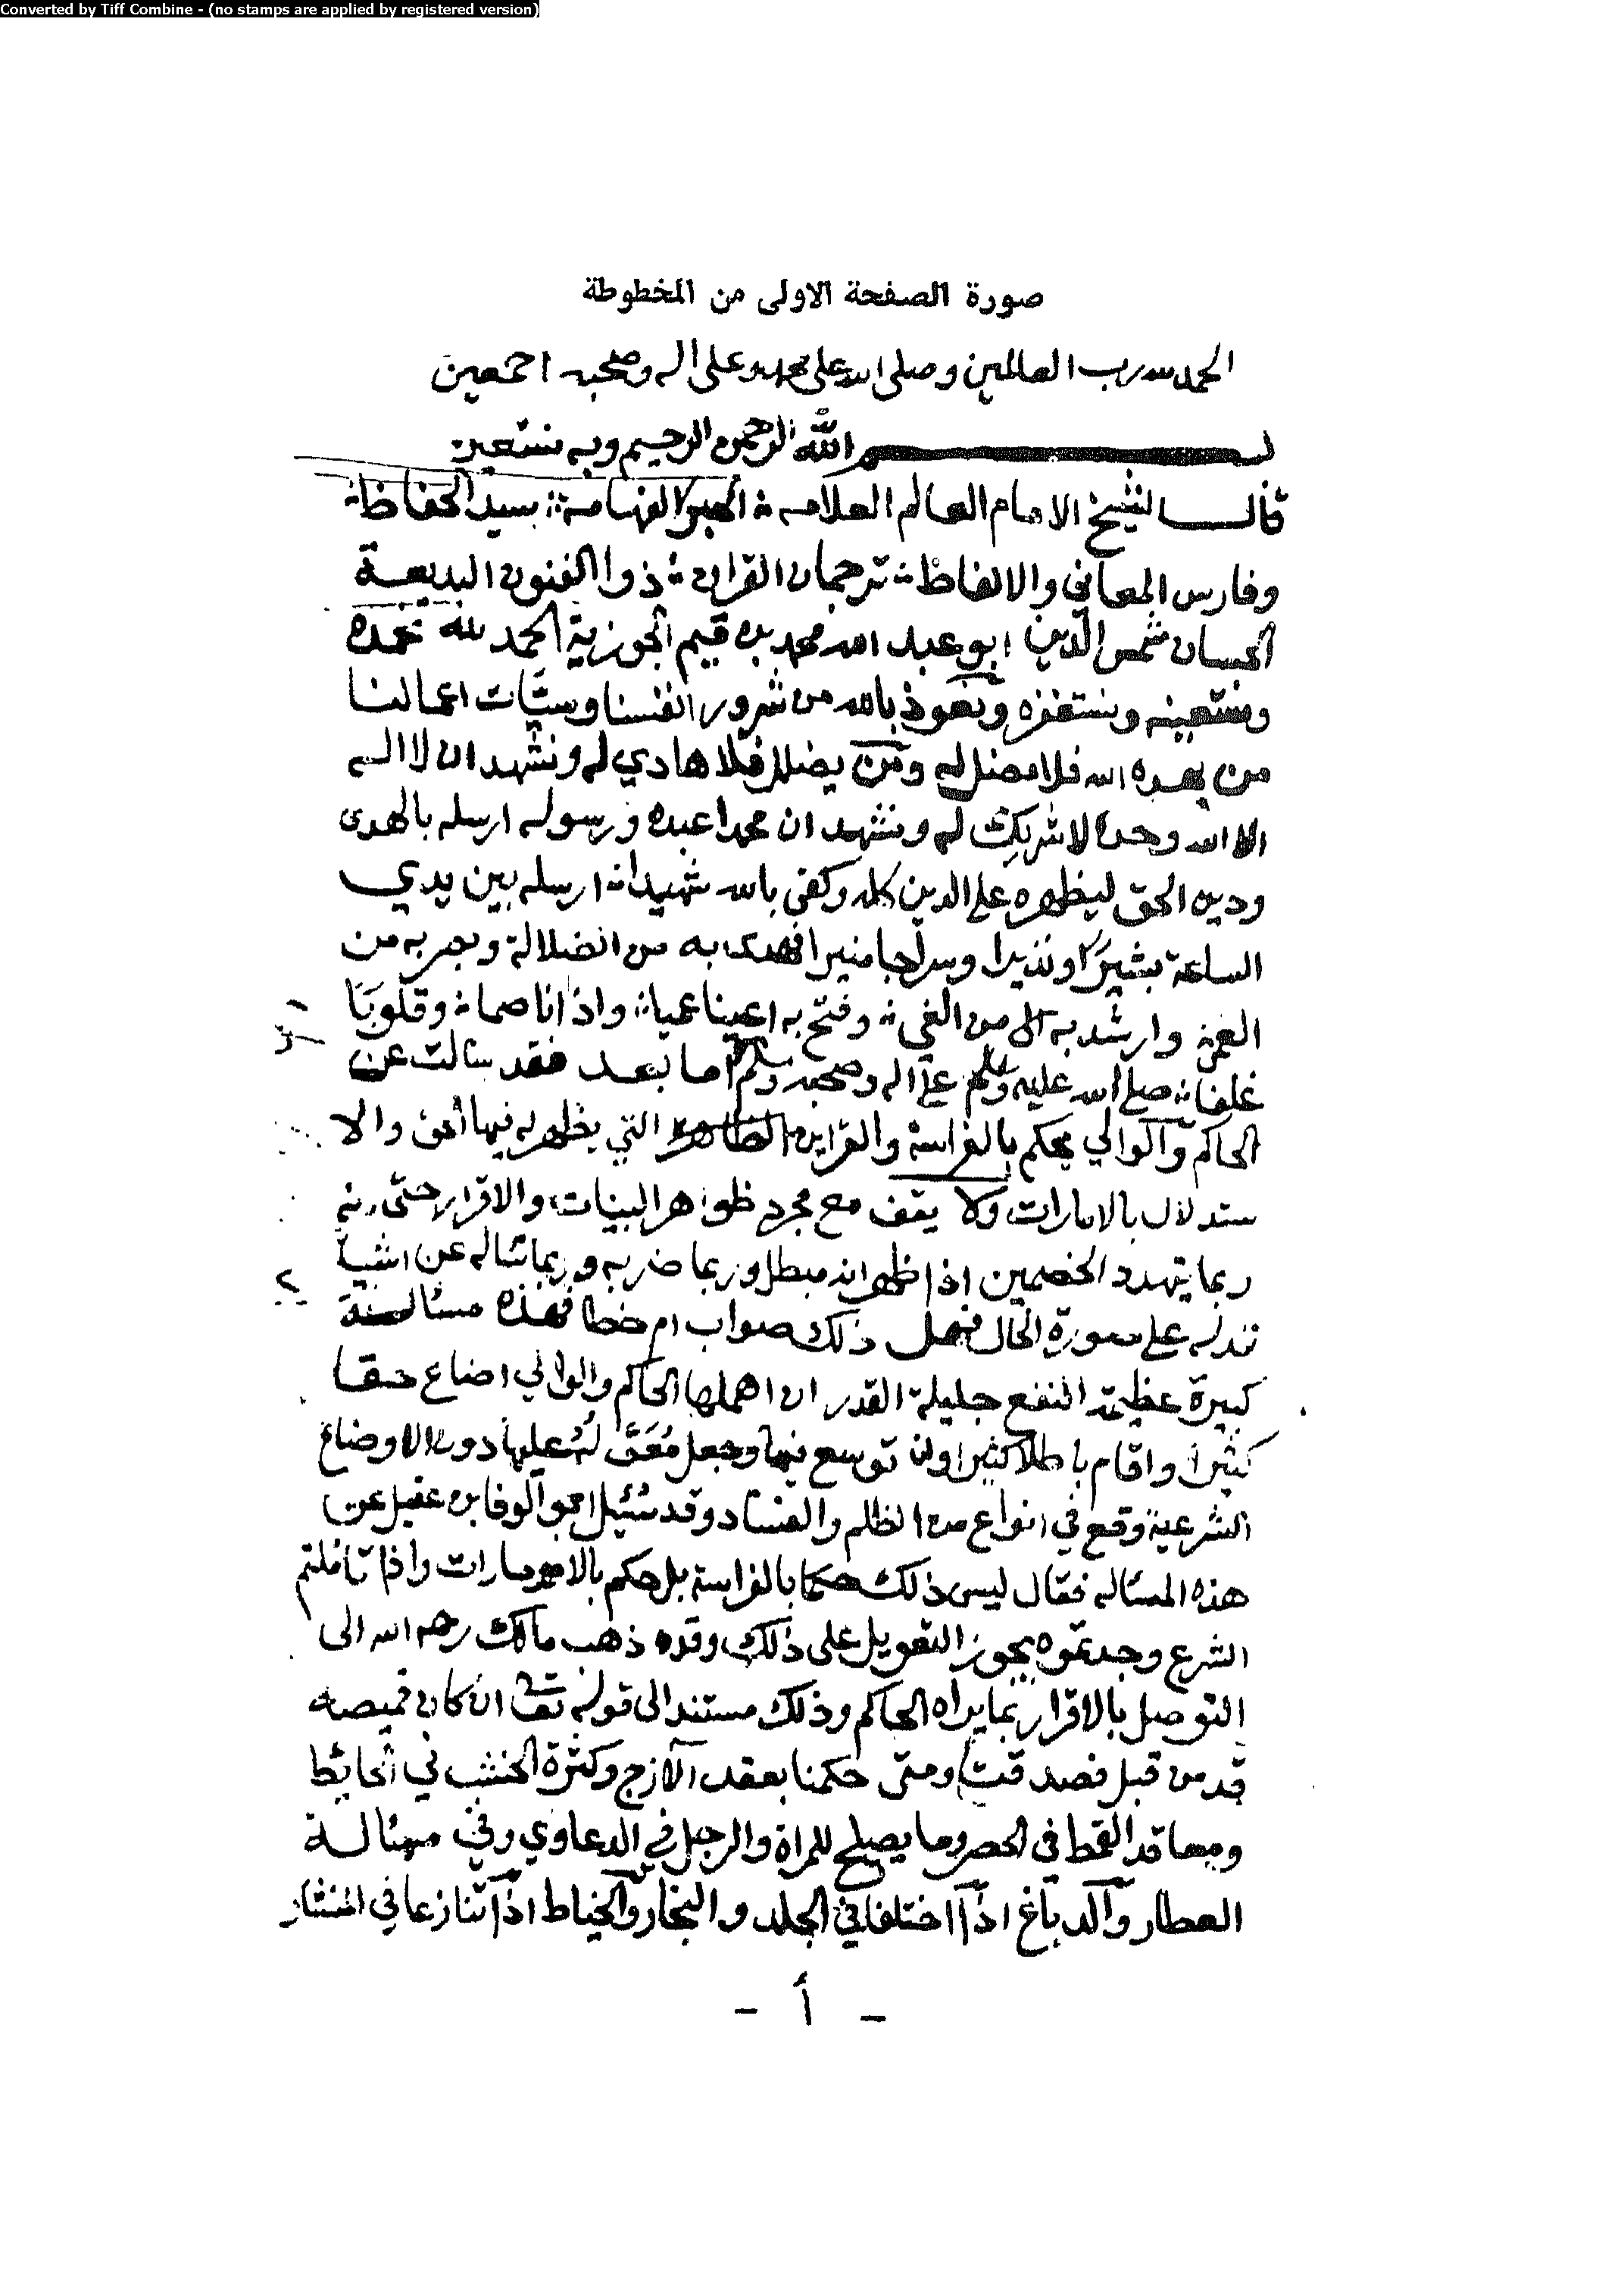 Converted by Tiff Combine - (no stamps are applied by registered version)
صورة الصفحة الاولى من المخطوطة
الحمد لله رب العالمين وصلى الله على محمد وعلى اله وصحبه اجمعين
بسم الله الرحمن الرحيم وبه نستعين
قال الشيخ الامام العالم العلامة الحبر الفهامة سيد الحفاظ
وفارس المعاني والالفاظ ترجمان القران ذوا الفنون البديعة
الحسان شمس الدين ابو عبد الله محمد بن قيم الجوزية الحمد لله نحمده
ونستعينه ونستغفره ونعوذ بالله من شرور انفسنا وسيّات اعمالنا
من يهده الله فلا مضل له ومن يضلل فلا هادي له ونشهد ان لا اله
الا الله وحده لا شريك له ونشهد ان محمدا عبده ورسوله ارسله بالهدى
ودين الحق ليظهره على الدين كله وكفى بالله شهيدا ارسله بين يدي
الساعة بشيرا ونذيرا وسراجا منيرا فهدى به من الضلالة وبصر به من
العمى وارشد به من الغي وفتح به اعينا عميا واذانا صما وقلوبًا
غلفا صلى الله عليه وسلم على اله وصحبه وسلم اما بعد فقد سالت عن
الحاكم والوالي يحكم بالفراسة والقراين الظاهره التي يظهر له فيها الحق والا
ستدلال بالامارات ولا يقف مع مجرد ظواهر البينات والاقرار حتى انه
ربما يتهدد الخصمين اذا ظهر انه مبطل وربما ضربه وربما ساله عن اشيا
تدله على صورة الحال فهل ذلك صواب ام خطا فهذه مسالة
كبيرة عظيمة المنفع جليلة القدر ان اهملها الحاكم والوالي اضاع حقا
كثيرا واقام باطلا كثيرا وان توسع فيها وجعل مُعَوَّلَهُ عليها دون الاوضاع
الشرعية وقع في انواع من الظلم والفساد وقد سُئيل ابو الوفا بن عقيل عن
هذه المساله فقال ليس ذلك حكما بالفراسة بل حكم بالامارات واذا تاملتم
الشرع وجدتموه يجوز التعويل على ذلك وقد ذهب مالك رحمه الله الى
التوصل بالاقرار بما يراه الحاكم وذلك مستند الى قوله تعالى ان كان قميصه
قد من قبل فصدقت ومتى حكمنا بعقد الازج وكثرة الخشب في الحائط
ومعاقد القمط في الخص وما يصلح للمراة والرجل في الدعاوي وفي مسالة
العطار والدباغ اذا اختلفا في الجلد والنجار والخياط اذا تنازعا في المنشار
- أ -